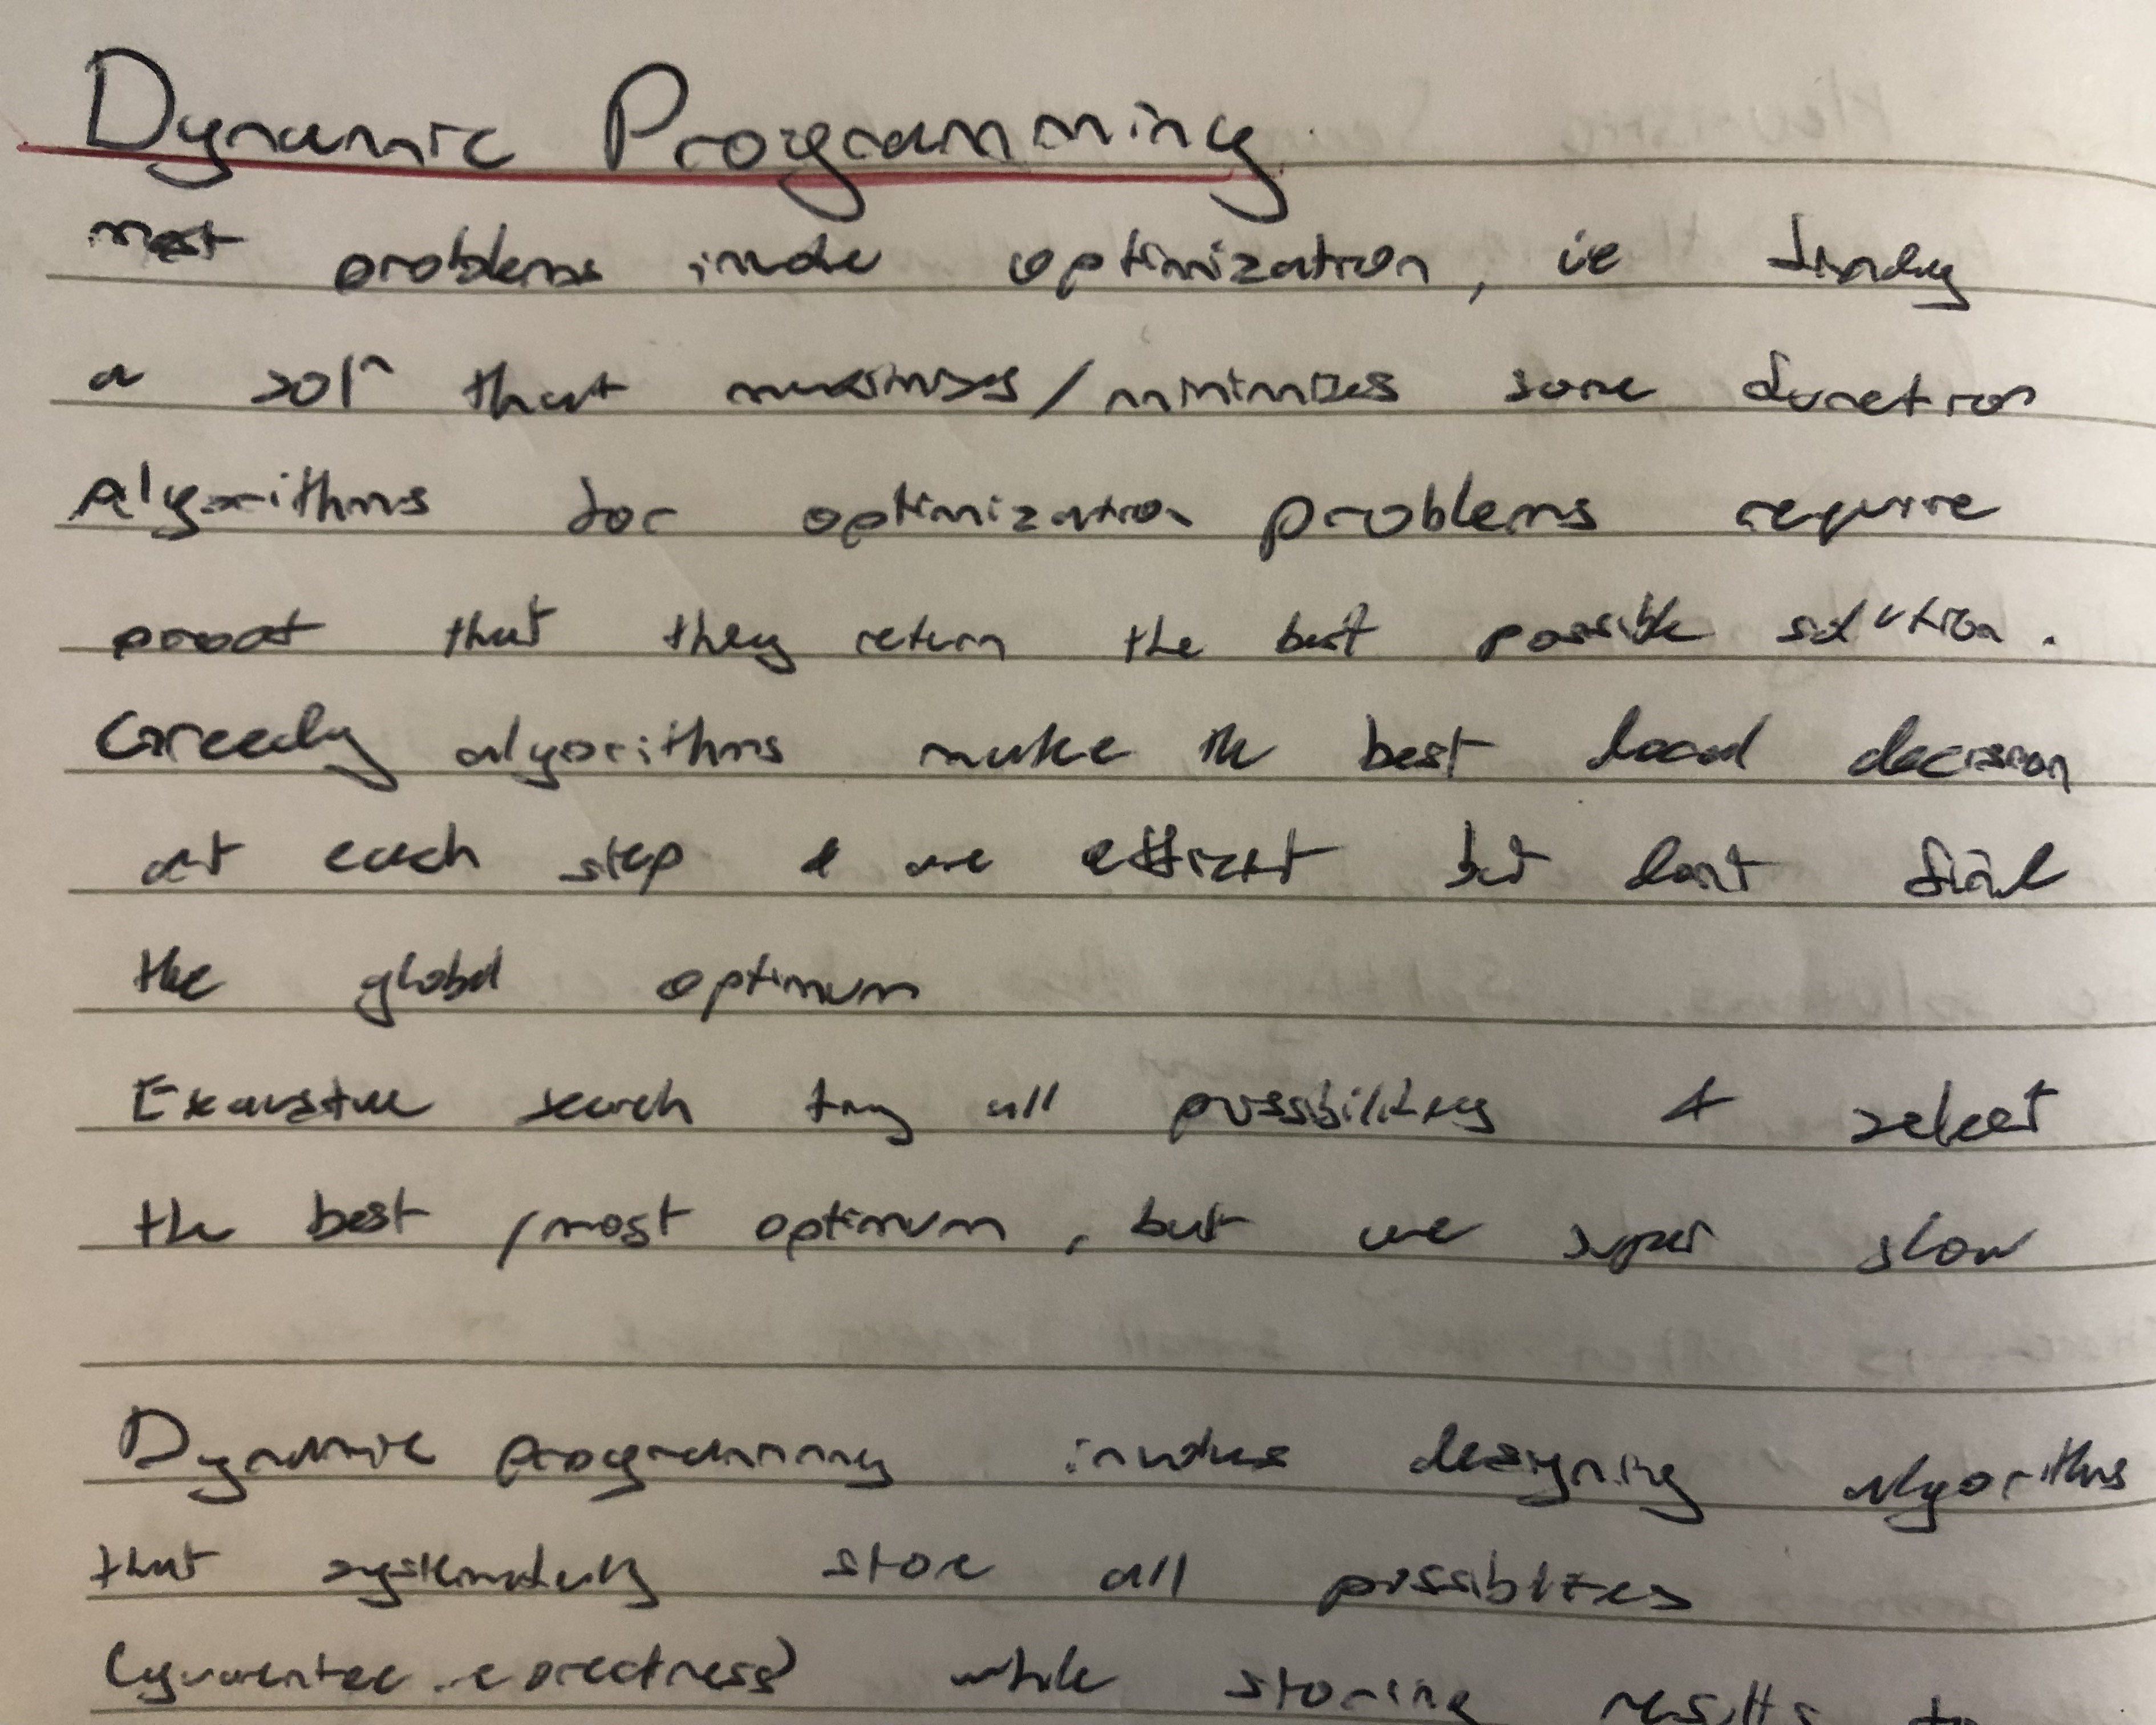 Dynamic Programming
most problems include optimization, ie finding
a solⁿ that maximizes/minimizes some function
Algorithms for optimization problems require
proof that they return the best possible solution.
Greedy algorithms make the best local decision
at each step & are efficient but dont find
the global optimum
Exaustive search try all possibilities & select
the best /most optimum, but are super slow
Dynamic programming involves designing algorithms
that systematically store all possiblites
(guarentee corectness) while storing results to